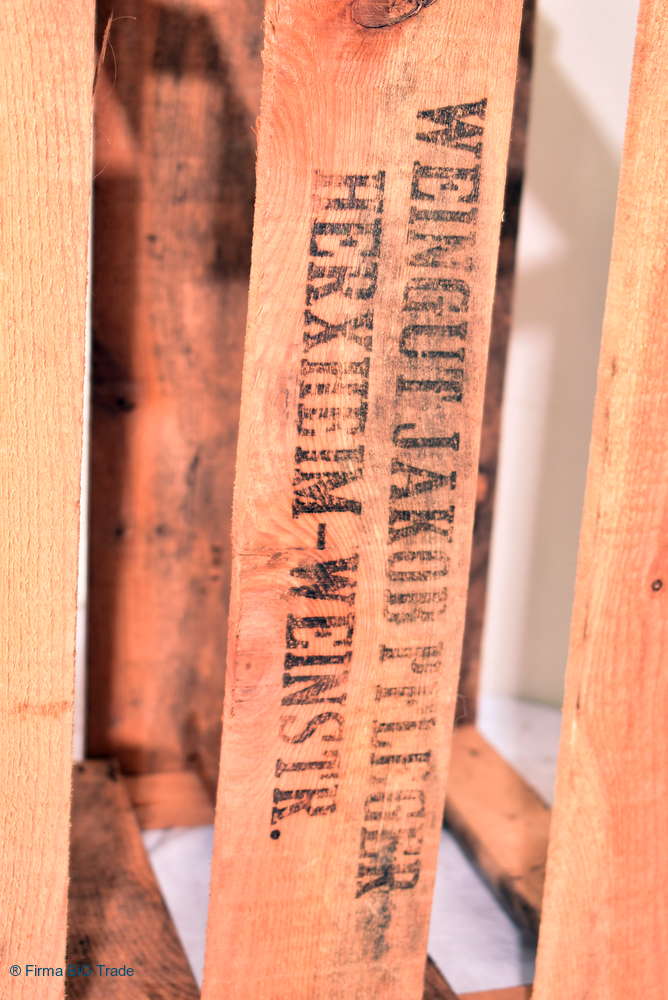 WEINGUT JAKOB PFLEGER
HERXHEIM-WEINSTR.
® Firma Trade